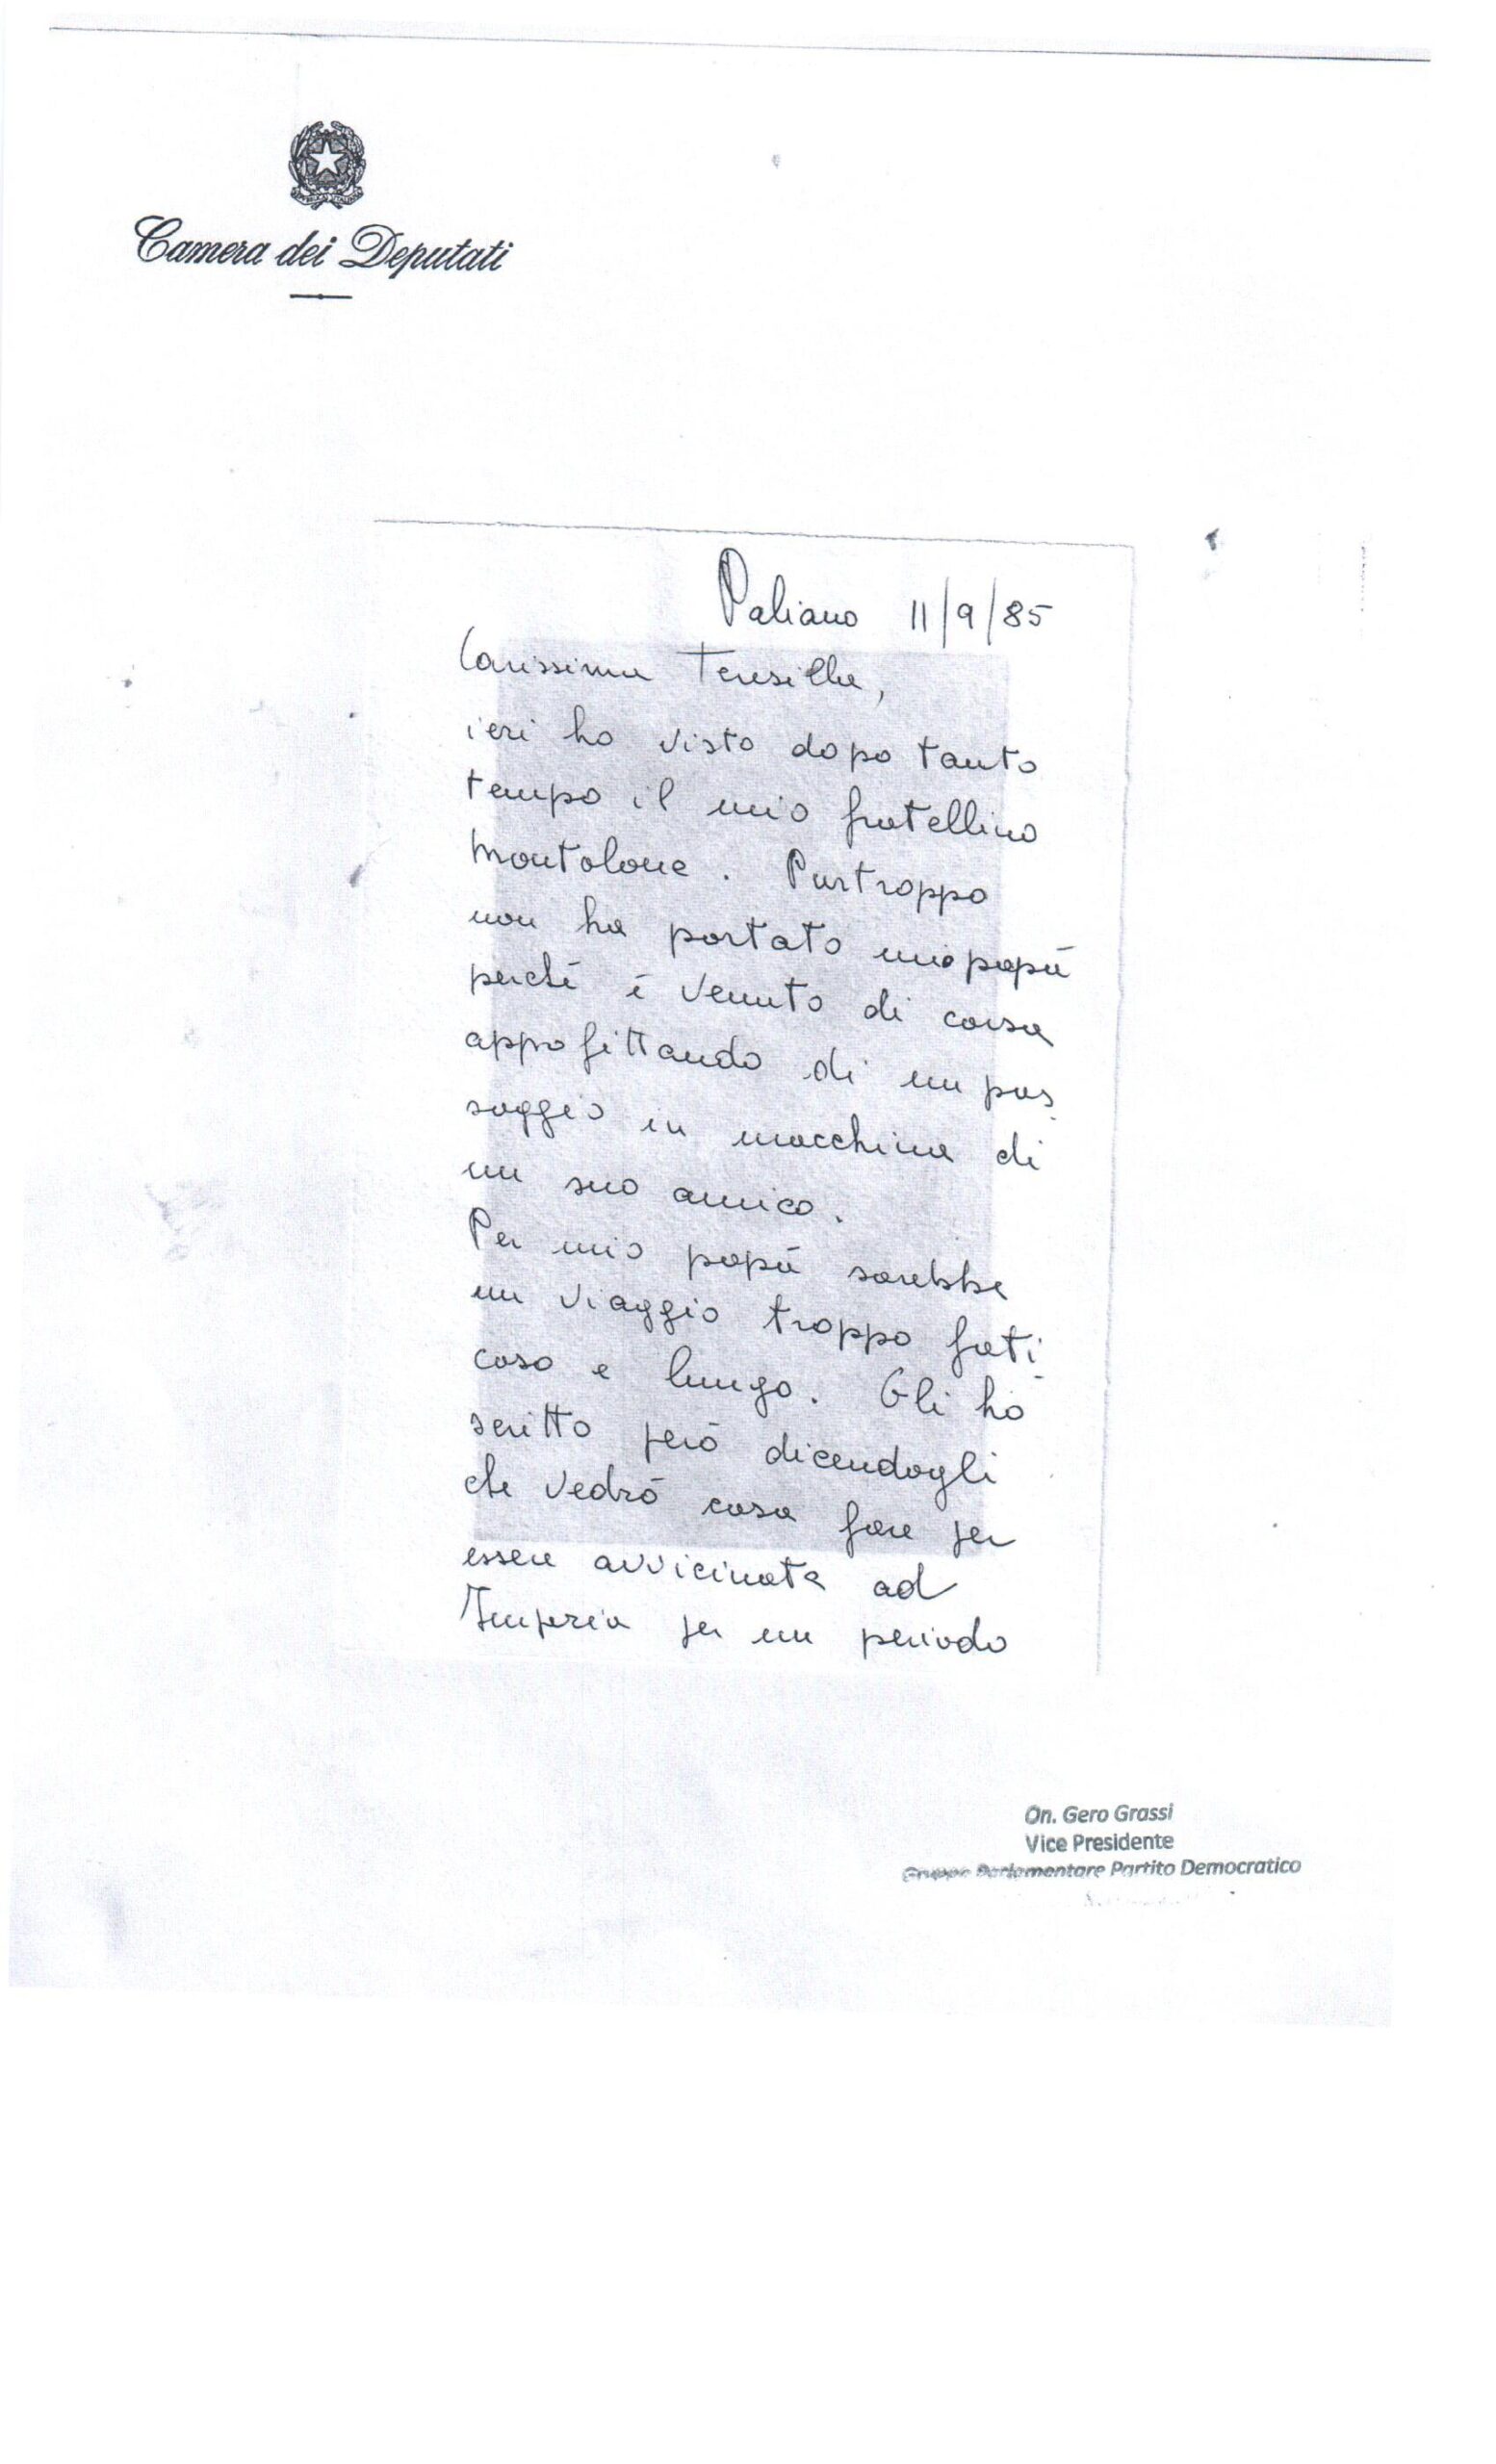 Camera dei Deputati
Paliano 11/9/85
Carissima Teresilla,
ieri ho visto dopo tanto
tempo il mio fratellino
mortolone. Purtroppo
non ha portato mio papà
perché è venuto di corsa
appofittando di un pas
saggio in macchina di
un suo amico.
Per mio papà sarebbe
un viaggio troppo fati
coso e lungo. Gli ho
scritto però dicendogli
che vedrò cosa fare per
essere avvicinata ad
Imperia per un periodo
On. Gero Grassi
Vice Presidente
Gruppo Parlamentare Partito Democratico